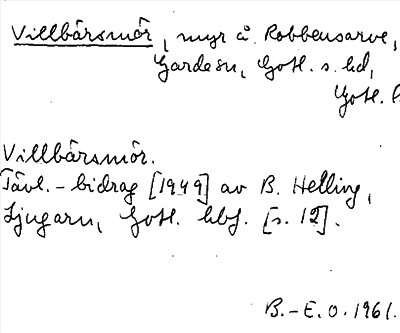 Villbärsmör, myr å Robbensarve,
Garde sn, Gotl. s. hd,
Gotl. l
Villbärsmör.
Tävl.-bidrag [1949] av B. Helling,
Ljugarn, Gotl. hbf. [s. 12].
B.-E. O. 1961.